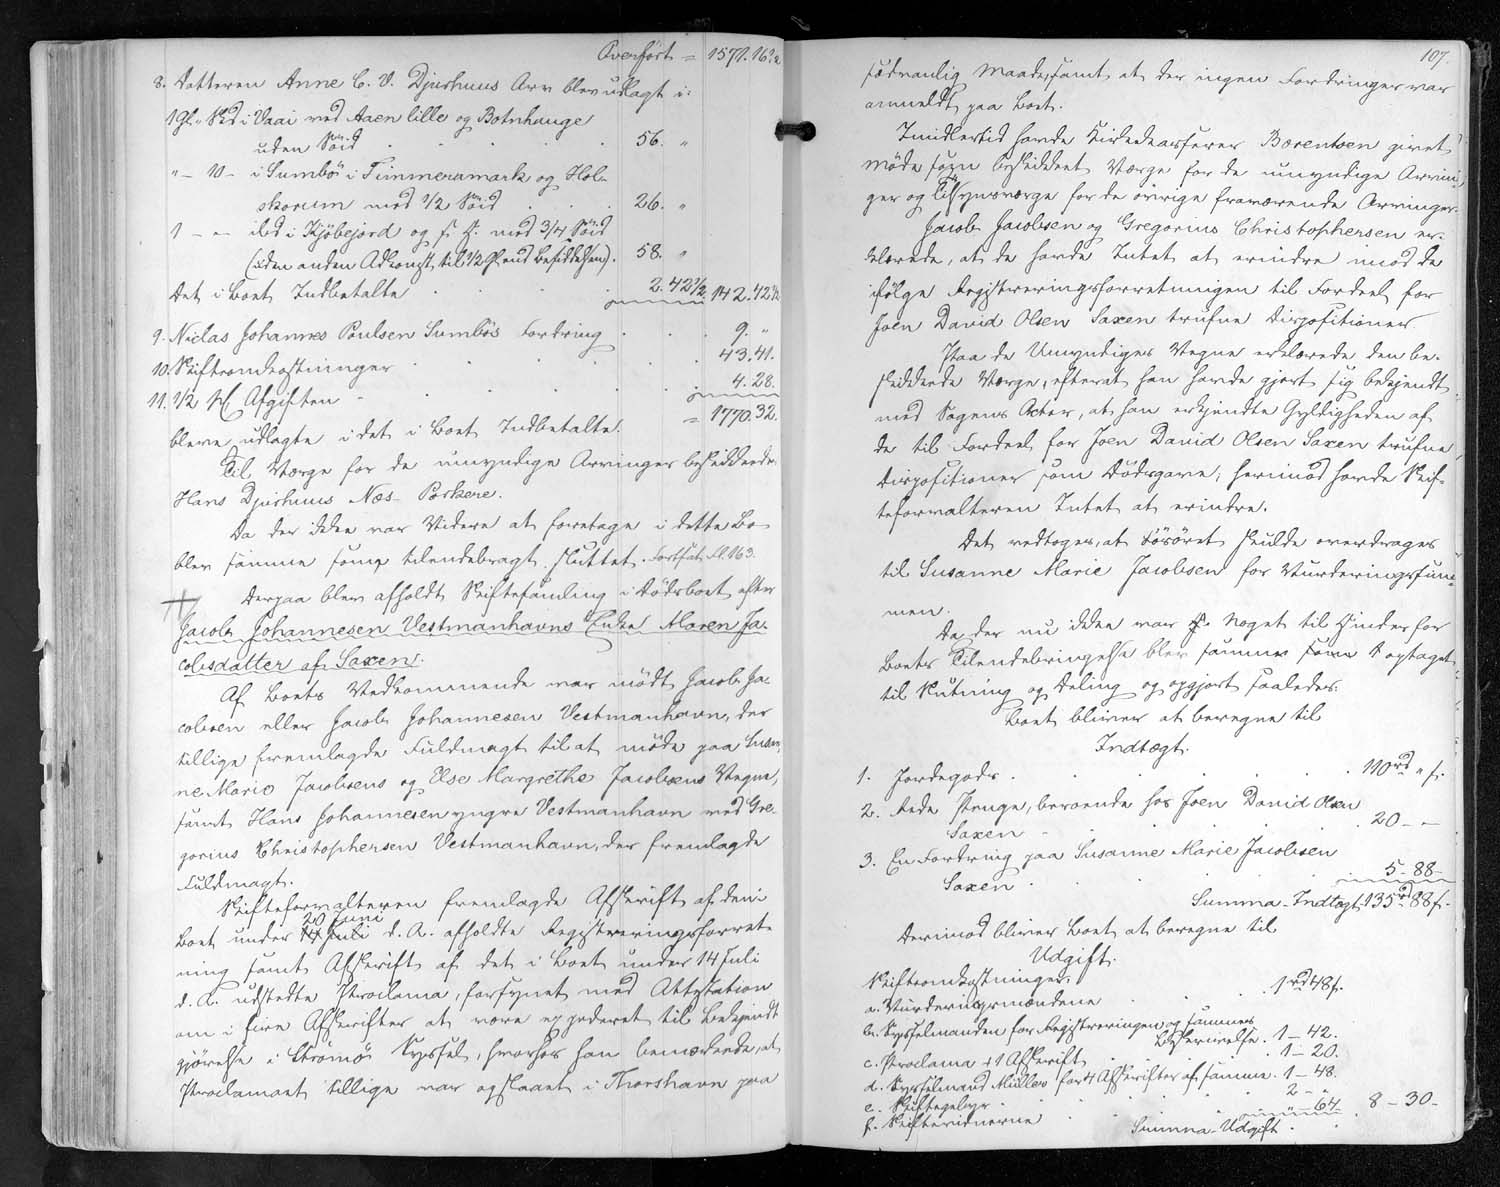 Overført = 1571.16½
8. Datteren Anne C. V. Djurhuus Arv blev udlagt i:
1 Gl. " Skd i Vaai ved Aaen lille og Botnhauge
uden Söid . . . . . 56. "
" – 10 – i Sumbö i Timmeramark og Hol-
skorum med 1/2 Söid . . . 26. "
1 – " – ibd i Kjöbejord og f. H. med 3/4 Söid
(uden anden Adkomst til 1/2 Gl end Besiddelsen). 58. "
Det i Boet Indbetalte . . . . 2.42½ 142.42½
9. Niclas Johannes Poulsen Sumbös Fordring . . . 9. "
10. Skifteomkostninger . . . . . 43.41.
11. 1/2 pCt Afgiften . . . . . 4.28.
bleve udlagte i det i Boet Indbetalte. = 1770.32.
Til Værge for de umyndige Arvinger beskikkedes
Hans Djurhuus Næs Porkere.
Da der ikke var Videre at foretage i dette Bo
blev samme som tilendebragt sluttet. Fortsat Fl. 163.
Derpaa blev afholdt Skiftesamling i Dödsboet efter
Jacob Johannesen Vestmanhavns Enke Maren Ja-
cobsdatter af Saxen.
Af Boets Vedkommende var mödt Jacob Ja-
cobsen eller Jacob Johannesen Vestmanhavn, der
tillige fremlagde Fuldmagt til at möde paa Susan-
ne Marie Jacobsens og Else Margrethe Jacobsens Vegne,
samt Hans Johannesen yngre Vestmanhavn ved Gre-
gorius Christophersen Vestmanhavn, der fremlagde
Fuldmagt.
Skifteforvalteren fremlagde Afskrift af den i
Boet under 14 Juli 20 Juni d. A. afholdte Registreringsforret-
ning samt Afskrift af det i Boet under 14 Juli
d. A. udstedte Proclama, forsynet med Attestation
om i fire Afskrifter at være expederet til Bekjendt
gjörelse i Strömö Syssel, hvorhos han bemærkede, at
Proclamaet tillige var opslaaet i Thorshavn paa
107.
sædvanlig Maade, samt at der ingen Fordringer var
anmeldt paa Boet.
Imidlertid havde Kirkekasserer Bærentsen givet
Möde som beskikket Værge for de umyndige Arvin-
ger og Tilsynsværge for de övrige fraværende Arvinger.
Jacob Jacobsen og Gregorius Christophersen er-
klærede, at de havde Intet at erindre imod de
ifölge Registreringsforretningen til Fordeel for
Joen David Olsen Saxen trufne Dispositioner.
Paa de Umyndiges Vegne erklærede den be-
skikkede Værge, efterat han havde gjort sig bekjendt
med Sagens Acter, at han erkjendte Gyldigheden af
de til Fordeel for Joen David Olsen Saxen trufne
Dispositioner som Dödsgave; herimod havde Skif-
teforvalteren Intet at erindre.
Det vedtoges, at Lösöret skulde overdrages
til Susanne Marie Jacobsen for Vurderingssum-
men.
Da der nu ikke var Noget til Hinder for
Boets Tilendebringelse blev samme optaget
til Slutning og Deling og opgjort saaledes:
Boet bliver at beregne til
Indtægt.
1. Jordegods . . . . . 110 rd " s.
2. Rede Penge, beroende hos Joen David Olsen
Saxen . . . . . 20 – –
3. En Fordring paa Susanne Marie Jacobsen
Saxen . . . . . 5 – 88 –
Summa Indtægt 135 rd 88 s.
Derimod bliver Boet at beregne til
Udgift.
Skifteomkostninger:
a. Vurderingsmændene . . . 1 rd 48 s.
b. Sysselmanden for Registreringen og sammes
Beskrivelse . 1 – 42.
c. Proclama + 1 Afskrift . . . 1 – 20.
d. Sysselmand Müller for 4 Afskrifter af samme . 1 – 48.
e. Skiftegebyr . . . . 2 – "
f. Skiftevidnerne . . . " – 64. 8 – 30 –
Summa Udgift . .